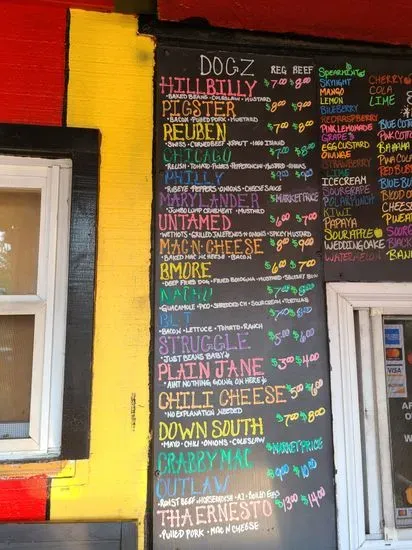 DOGZ REG BEEF
HILLBILLY $7.00 $8.00
•BAKED BEANS •COLESLAW •MUSTARD
PIGSTER $8.00 $9.00
•BACON •PULLED PORK •MUSTARD
REUBEN $7.00 $8.00
•SWISS •CORNED BEEF •KRAUT •1000 ISLAND
CHICAGO $7.00 $8.00
•RELISH •TOMATO •PICKLES •PEPPERONCHI •MUSTARD •ONIONS
PHILLY
•RIBEYE •PEPPERS •ONIONS •CHEESE SAUCE
MARYLANDER $MARKET PRICE
•JUMBO LUMP CRABMEAT •MUSTARD
UNTAMED $6.00 $7.00
•HOTNOTS •GRILLED JALEPENOS •ONIONS •SPICEY MUSTARD
MAC-N-CHEESE $8.00 $9.00
•BAKED MAC N CHEESE •BACON
BMORE $6.00 $7.00
•DEEP FRIED DOG •FRIED BOLOGNA •MUSTARD
NACHO
•GUACAMOLE •PICO •SHREDDED CH •SOUR CREAM •TORTILLAS
BLT
•BACON •LETTUCE •TOMATO •RANCH
STRUGGLE $5.00 $6.00
•JUST BEANS BABY
PLAIN JANE $3.00 $4.00
•AINT NOTHING GOING ON HERE
CHILI CHEESE $5.00
•NO EXPLANATION NEEDED
DOWN SOUTH $7.00 $8.00
•MAYO •CHILI •ONIONS •COLESLAW
CRABBY MAC $MARKET PRICE
OUTLAW $9.00 $10.00
•ROAST BEEF •HORSERADISH •A1 •BOILED EGG
THA ERNESTO $13.00 $14.00
•PULLED PORK •MAC N CHEESE
SPEARMINT
SKYLIGHT
MANGO
LEMON
BLUEBERRY
RED RASPBERRY
PINK LEMONADE
GRAPE
EGG CUSTARD
ORANGE
STRAWBERRY
LIME
ICE CREAM
SOUR GRAPE
POLAR PUNCH
KIWI
PAPAYA
SOUR APPLE
WEDDING CAKE
WATERMELON
CHERRY
COLA
LIME
BLUE COT
PNK COTT
BANANA
PWR
RED BUB
BLUE BU
BLOOD O
CHEESE
PUEE
SWE
BAN
VISA